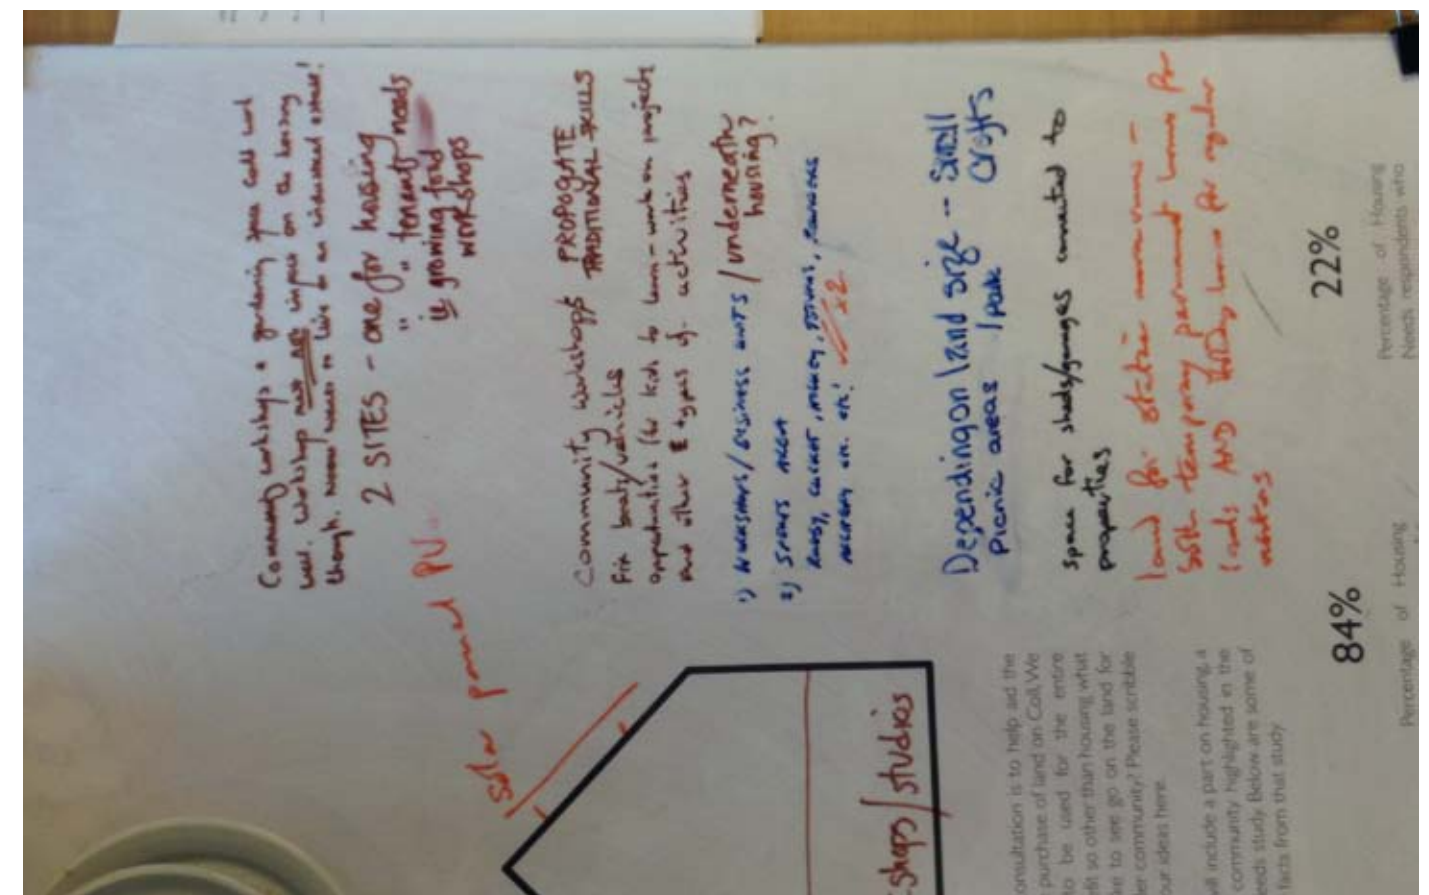 Community workshops + gardening space could work
well. Workshop may not impact on the housing
though. Noone wants to live on an industrial estate!
2 SITES - one for housing
" " tenants needs
ie growing food
workshops
Solar panel PV
Community workshops PROPOGATE
TRADITIONAL SKILLS
Fix boats/vehicles
opportunities for kids to learn - work on projects
and other types of activities
1) WORKSHOPS/BUSINESS UNITS /underneath
housing?
2) SPORTS AREA
RUGBY, CRICKET, HOCKEY, TENNIS, ROUNDERS
ARCHERY etc. etc! x2
Depending on land size - Small
Crofts
Picnic areas / park
space for sheds/garages connected to
properties
land for static caravans -
both temporary permanent homes for
locals AND holiday homes for regular
visitors
shops/studios
onsultation is to help aid the
purchase of land on Coll. We
to be used for the entire
fit so other than housing what
ke to see go on the land for
er community? Please scribble
our ideas here.
ll include a part on housing, a
community highlighted in the
eeds study. Below are some of
facts from that study
84%
Percentage of Housing
22%
Percentage of Housing
Needs respondents who